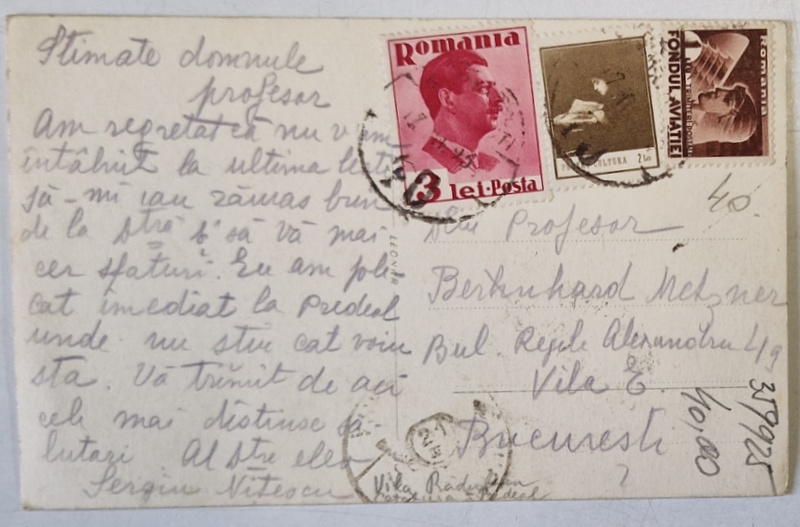 Stimate domnule
profesor
Am regretat că nu v-am
întâlnit la ultima
să-mi iau rămas bun
de la Dtră și să vă mai
cer sfaturi. Eu am ple
cat imediat la Predeal
unde nu știu cat voiu
sta. Vă trimit de aci
cele mai distinse sa-
lutări Al Dtre elev
Sergiu Nițescu
Romania
3 lei·Posta
CULTURA 2 Lei
Romania
FONDUL AVIATIEI
LEONAR
40
Dlui Profesor
Bernhard Metzner
Bul. Regele Alexandru 49
Vila E
Bucuresti
?
Vila
Predeal
359925
40,00